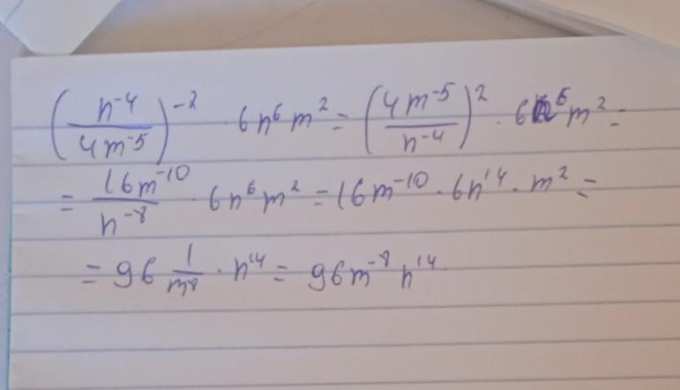 (n⁻⁴/4m⁻⁵)⁻² · 6n⁶m² = (4m⁻⁵/n⁻⁴)² · 6n⁶m² =
= 16m⁻¹⁰/n⁻⁸ · 6n⁶m² = 16m⁻¹⁰ · 6n¹⁴ · m² =
= 96 1/m⁸ · n¹⁴ = 96m⁻⁸n¹⁴